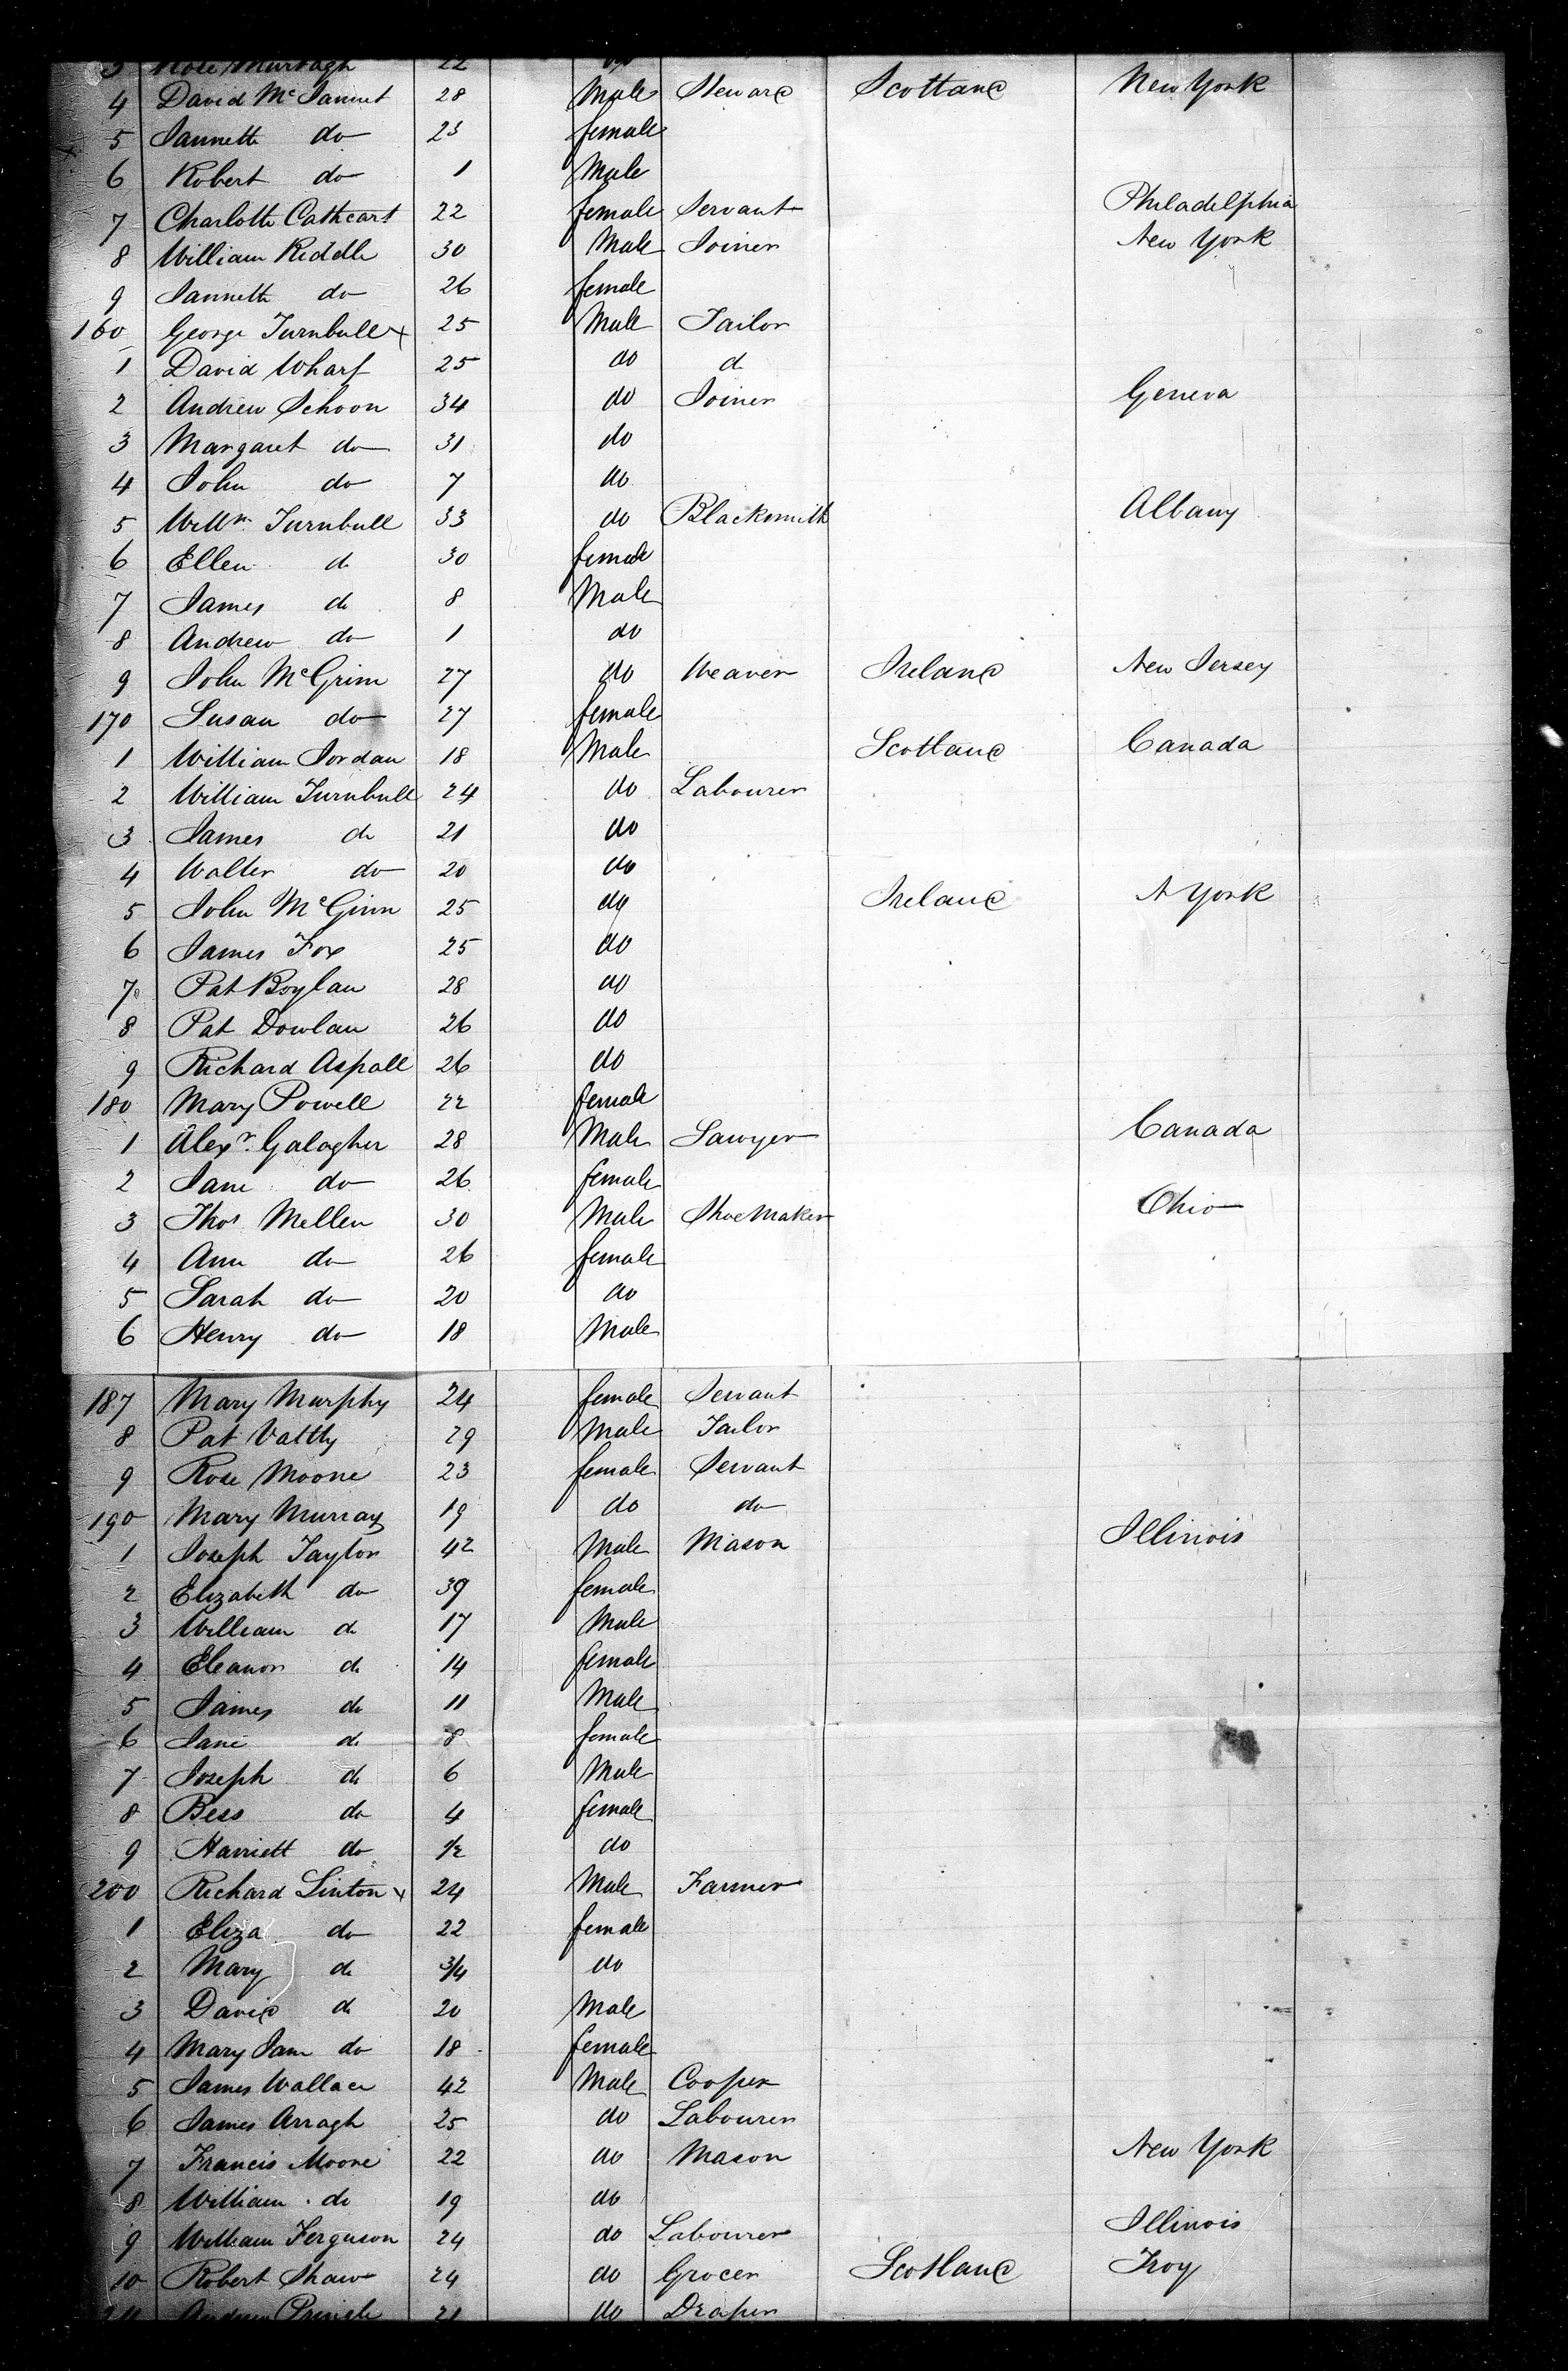 3 Rose Murtagh 22 do
4 David McJannet 28 Male Steward Scotland New York
5 Jannette do 23 female
6 Robert do 1 Male
7 Charlotte Cathcart 22 female Servant Philadelphia
8 William Riddle 30 Male Joiner New York
9 Jannette do 26 female
160 George Turnbull x 25 Male Tailor
1 David Wharf 25 do d
2 Andrew Schoon 34 do Joiner Geneva
3 Margaret do 31 do
4 John do 7 do
5 Willm Turnbull 33 do Blacksmith Albany
6 Ellen d 30 female
7 James d 8 Male
8 Andrew do 1 do
9 John McGrim 27 do Weaver Ireland New Jersey
170 Susan do 27 female
1 William Jordan 18 Male Scotland Canada
2 William Turnbull 24 do Labourer
3 James do 21 do
4 Walter do 20 do
5 John McGinn 25 do Ireland N York
6 James Fox 25 do
7 Pat Boylan 28 do
8 Pat Dowlan 26 do
9 Richard Aspall 26 do
180 Mary Powell 22 female
1 Alexr. Galogher 28 Male Sawyer Canada
2 Jane do 26 female
3 Thos Mellen 30 Male ShoeMaker Ohio
4 Ann do 26 female
5 Sarah do 20 do
6 Henry do 18 Male
187 Mary Murphy 24 female Servant
8 Pat Vattly 29 Male Tailor
9 Rose Moone 23 female Servant
190 Mary Murray 19 do do
1 Joseph Taylor 42 Male Mason Illinois
2 Elizabeth do 39 female
3 William d 17 Male
4 Eleanor d 14 female
5 James do 11 Male
6 Jane d 8 female
7 Joseph do 6 Male
8 Bess do 4 female
9 Harriett do 1/2 do
200 Richard Linton x 24 Male Farmer
1 Eliza do 22 female
2 Mary d 3/4 do
3 David d 20 Male
4 Mary Jane do 18 female
5 James Wallace 42 Male Cooper
6 James Arragh 25 do Labourer
7 Francis Moore 22 do Mason New York
8 William do 19 do
9 William Ferguson 24 do Labourer Illinois
10 Robert Shaw 24 do Grocer Scotland Troy
211 Andrew Pringle 21 do Draper